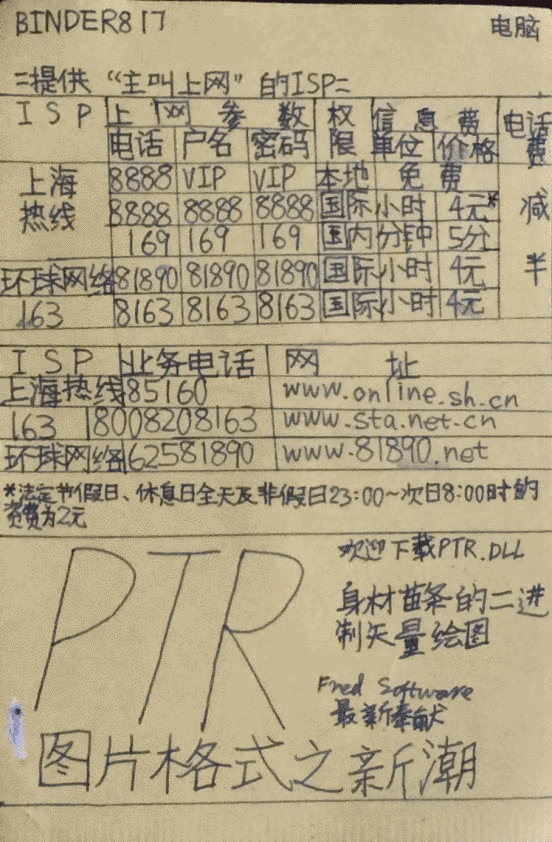 BINDER817 电脑
=提供“主叫上网”的ISP=
ISP 上网参数 权限 信息费 电话费
电话 户名 密码 单位 价格
上海热线 8888 VIP VIP 本地 免费 减半
8888 8888 8888 国际 小时 4元*
169 169 169 国内 分钟 5分
环球网络 81890 81890 81890 国际 小时 4元
163 8163 8163 8163 国际 小时 4元
ISP 业务电话 网址
上海热线 85160 www.online.sh.cn
163 8008208163 www.sta.net.cn
环球网络 62581890 www.81890.net
*法定节假日、休息日全天及非假日23:00~次日8:00时的
资费为2元
PTR
欢迎下载PTR.DLL
身材苗条的二进
制矢量绘图
Fred Software
最新奉献
图片格式之新潮